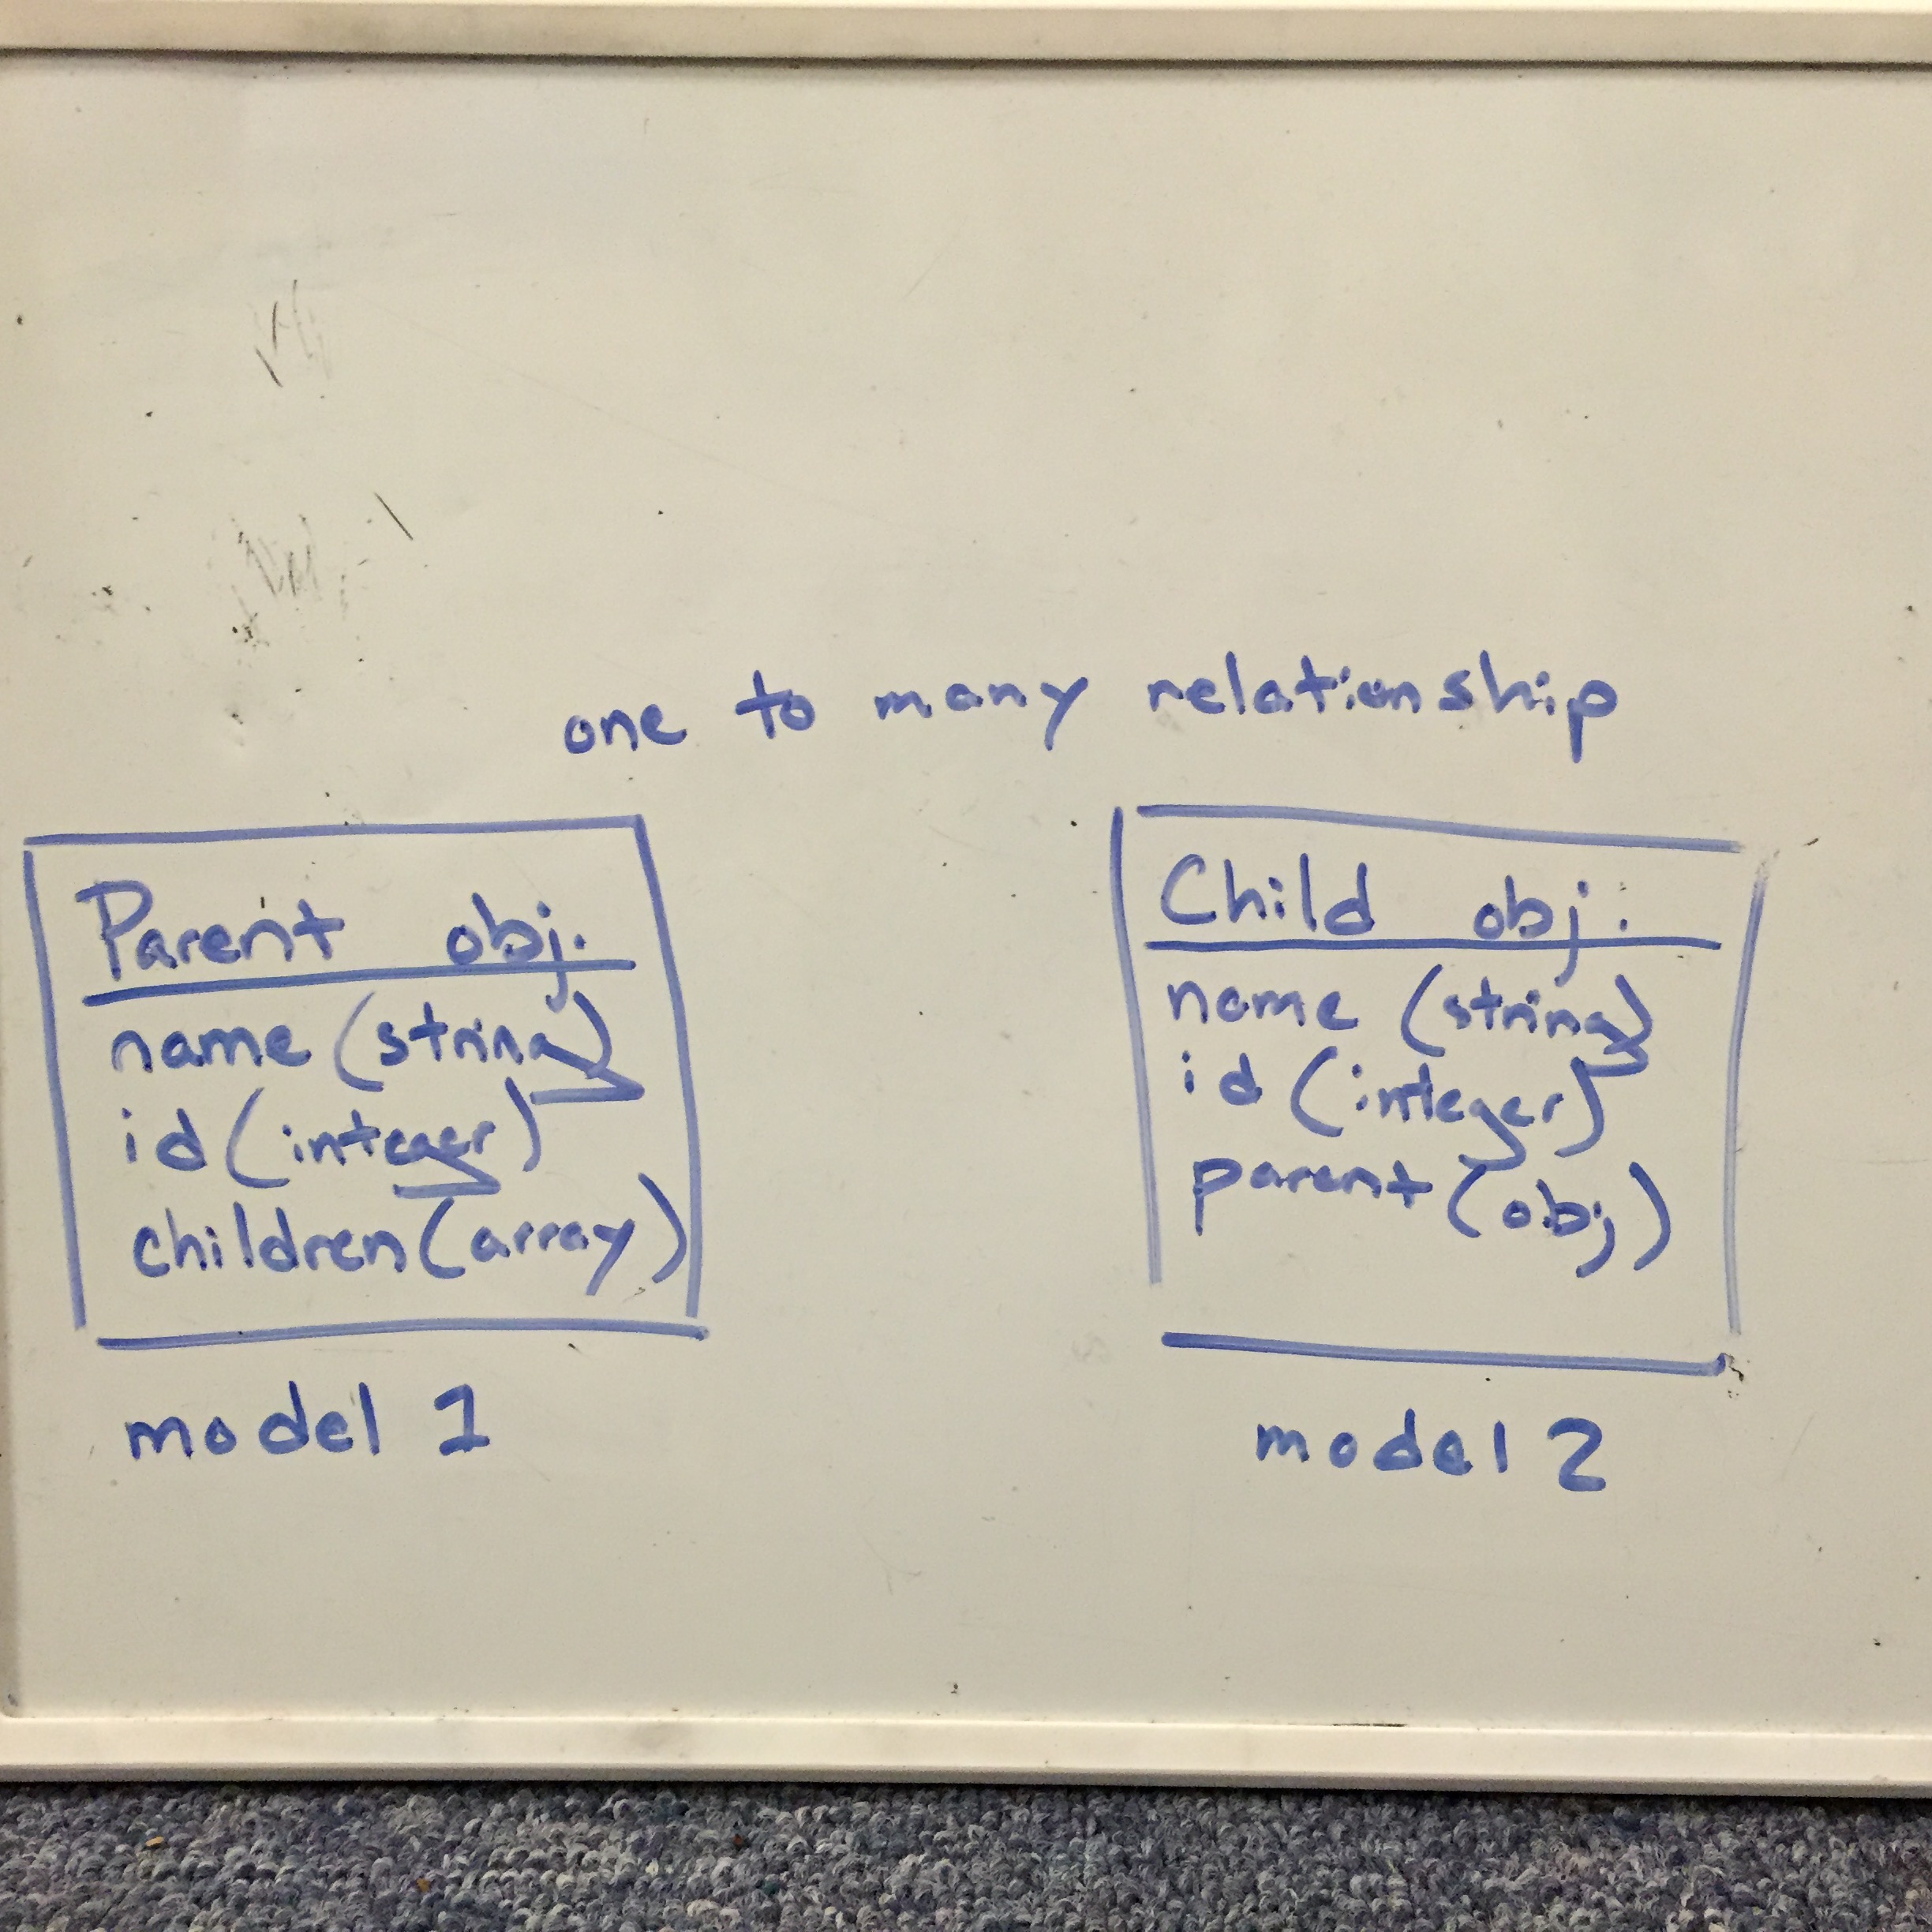 one to many relationship
Parent obj.
name (string)
id (integer)
children (array)
model 1
Child obj.
name (string)
id (integer)
parent (obj)
model 2